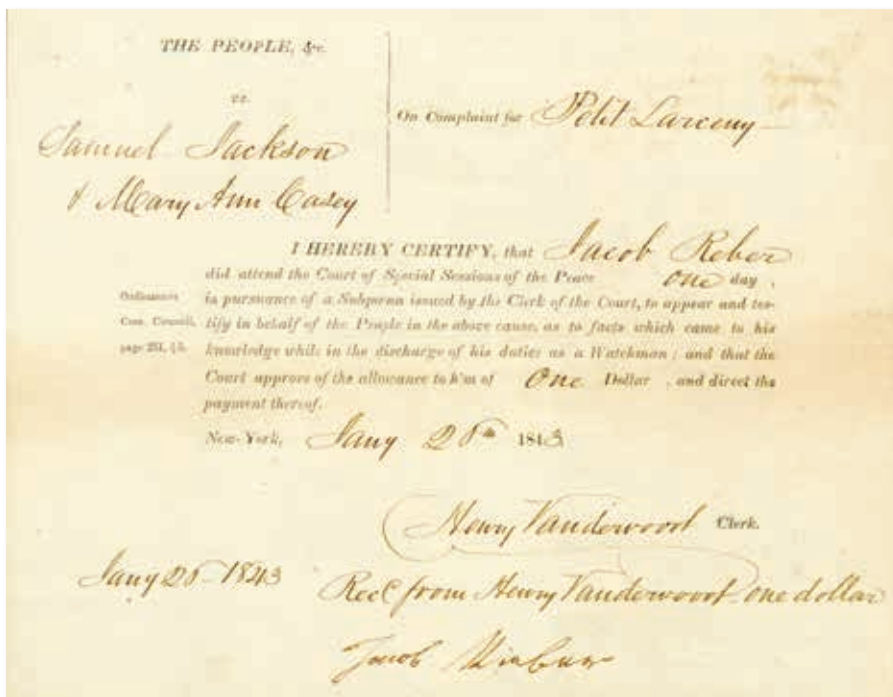 THE PEOPLE, &c.
vs.
Samuel Jackson
& Mary Ann Casey
On Complaint for Petit Larceny
I HEREBY CERTIFY, that Jacob Reber
did attend the Court of Special Sessions of the Peace one day,
in pursuance of a Subpœna issued by the Clerk of the Court, to appear and tes-
tify in behalf of the People in the above cause, as to facts which came to his
knowledge while in the discharge of his duties as a Watchman; and that the
Court approve of the allowance to him of One Dollar, and direct the
payment thereof.
Ordinances
Com. Council,
page 251, § 5.
New-York, Jany 1843
Henry Vanderwoort Clerk.
Jany 1843
Rec from Henry Vanderwoort one dollar
Jacob